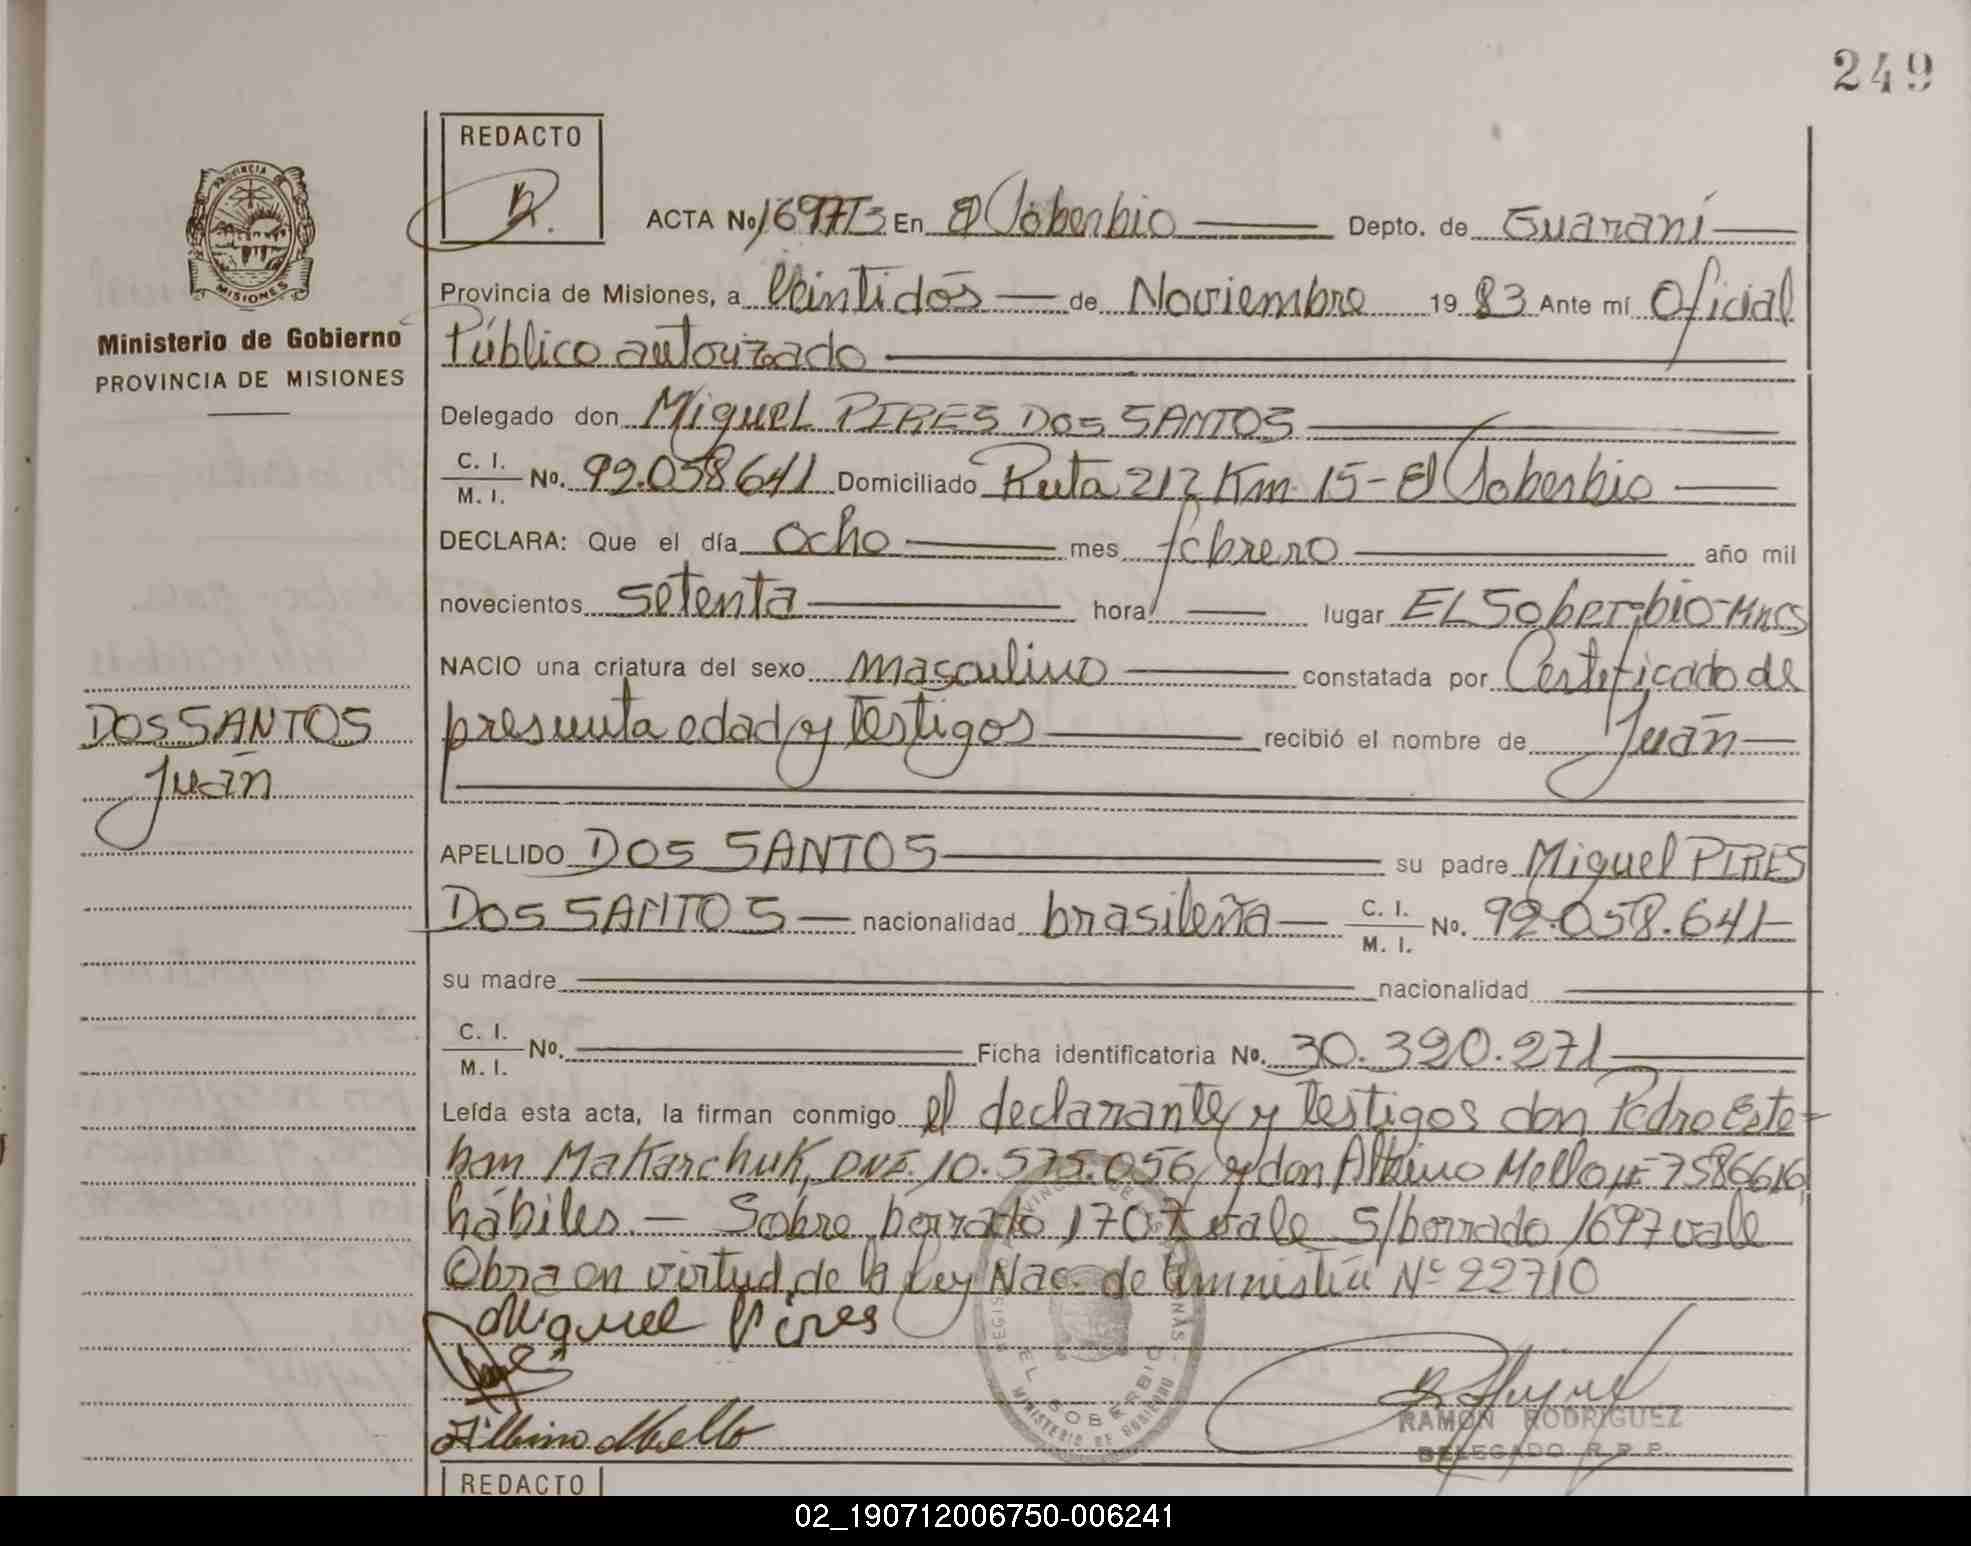 249
REDACTO
PROVINCIA DE
MISIONES
Ministerio de Gobierno
PROVINCIA DE MISIONES
ACTA No 1697 T3 En El Soberbio Depto. de Guaraní
Provincia de Misiones, a Veintidós de Noviembre 19 83 Ante mí Oficial
Público autorizado
Delegado don Miguel PIRES DOS SANTOS
C. I.
M. I. No. 92.058641 Domiciliado Ruta 212 Km 15- El Soberbio
DECLARA: Que el día ocho mes febrero año mil
novecientos setenta hora lugar EL Soberbio-Mnes
NACIO una criatura del sexo masculino constatada por Certificado de
presunta edad y testigos recibió el nombre de Juan
DOS SANTOS
Juan
APELLIDO DOS SANTOS su padre Miguel PIRES
DOS SANTOS nacionalidad brasileña C. I.
M. I. No. 92.058.641
su madre nacionalidad
C. I.
M. I. No. Ficha identificatoria No. 30.390.271
Leída esta acta, la firman conmigo el declarante y testigos don Pedro Este-
ban Makarchuk, DNI. 10.575.056 y don Albino Mello LE 7586616
hábiles.- Sobre borrado 1707 vale S/borrado 1697 vale
Obra en virtud de la Ley Nac. de Amnistía Nº 22710
Miguel Pires
Albino Mello
EL SOBERBIO
MINISTERIO DE GOBIERNO
RAMON RODRIGUEZ
DELEGADO R. P. P.
REDACTO
02_190712006750-006241